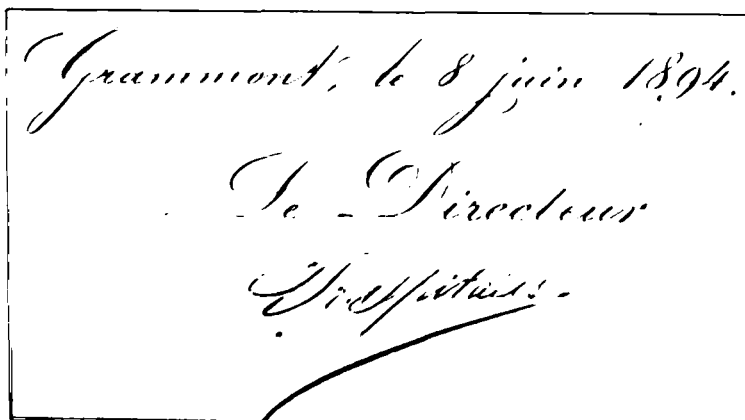 Grammont, le 8 juin 1894.
Le Directeur